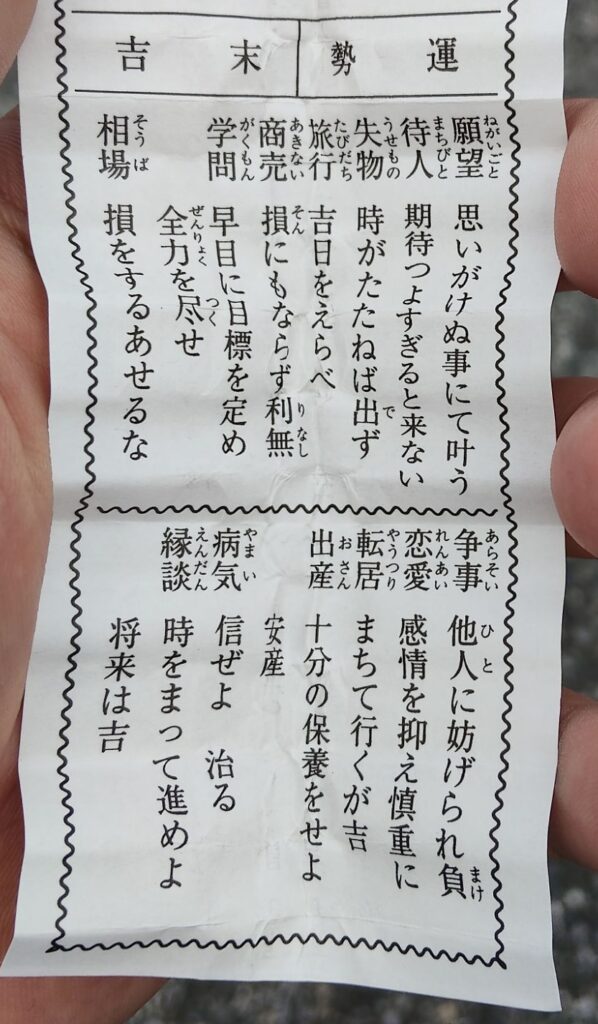 運勢 末吉
願望 思いがけぬ事にて叶う
ねがいごと
待人 期待つよすぎると来ない
まちびと
失物 時がたたねば出ず
うせもの で
旅行 吉日をえらべ
たびだち
商売 損にもならず利無
あきない そん りなし
学問 早目に目標を定め
がくもん つく
全力を尽せ
ぜんりょく
相場 損をするあせるな
そうば
争事 他人に妨げられ負
あらそい ひと まけ
恋愛 感情を抑え慎重に
れんあい
転居 まちて行くが吉
やうつり
出産 十分の保養をせよ
おさん
安産
病気 信ぜよ 治る
やまい
縁談 時をまって進めよ
えんだん
将来は吉